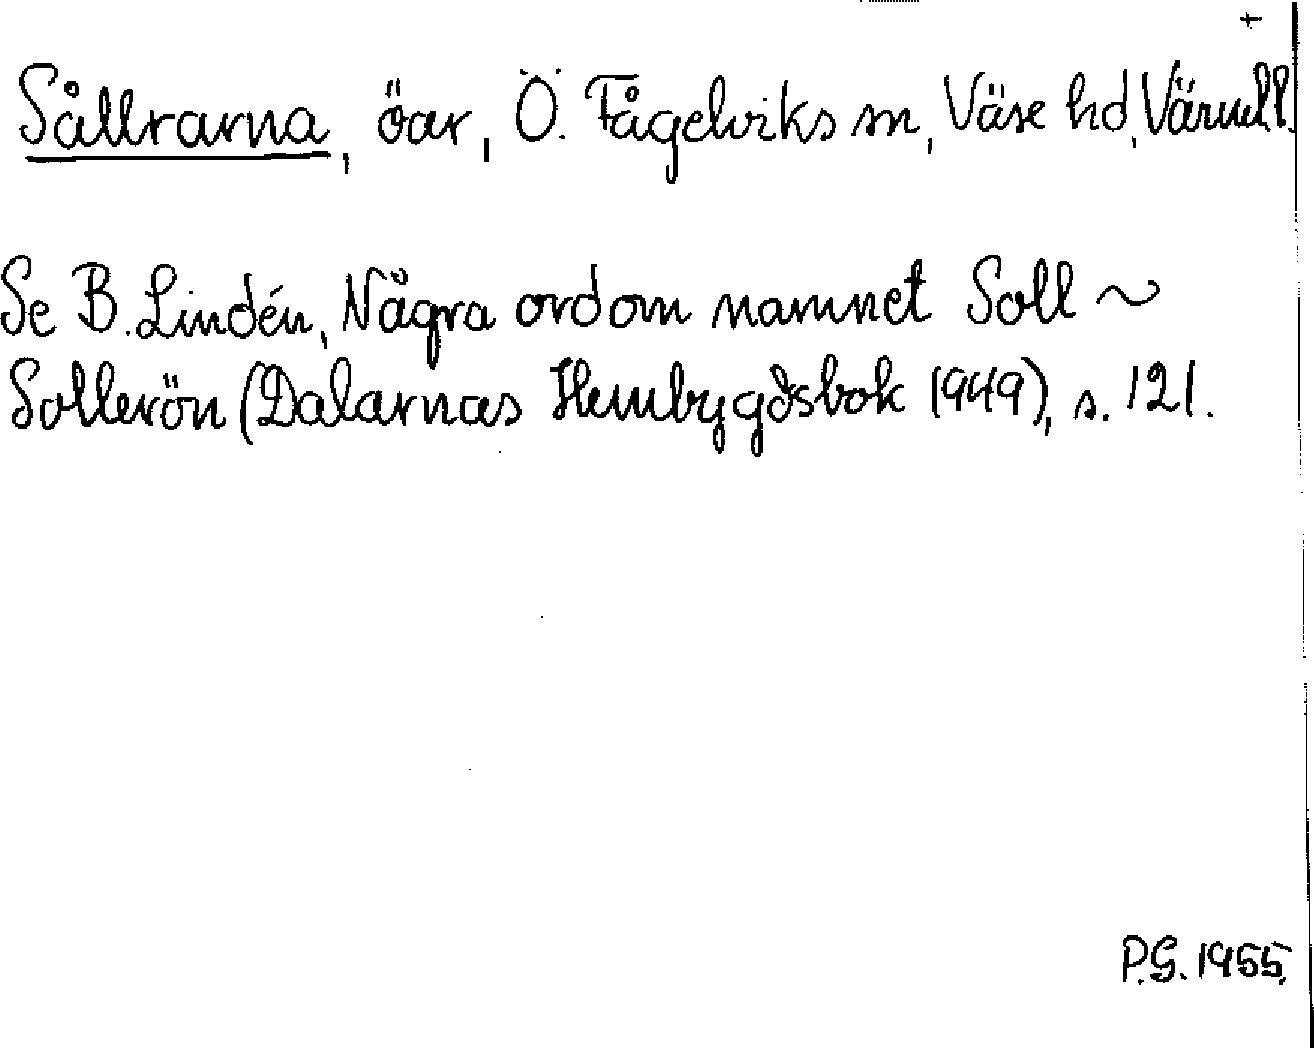 +
Sållrarna, öar, Ö. Fågelviks sn, Väse hd, Värmll.
Se B. Lindén, Några ord om namnet Soll ~
Sollerön (Dalarnas Hembygdsbok 1949), s. 121.
P.G. 1955.